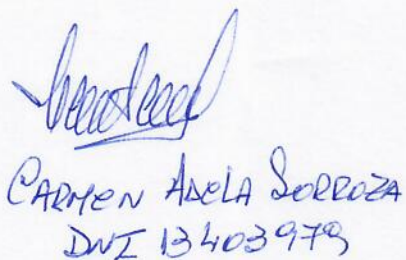 CARMEN ADELA SORROZA
DNI 13403979